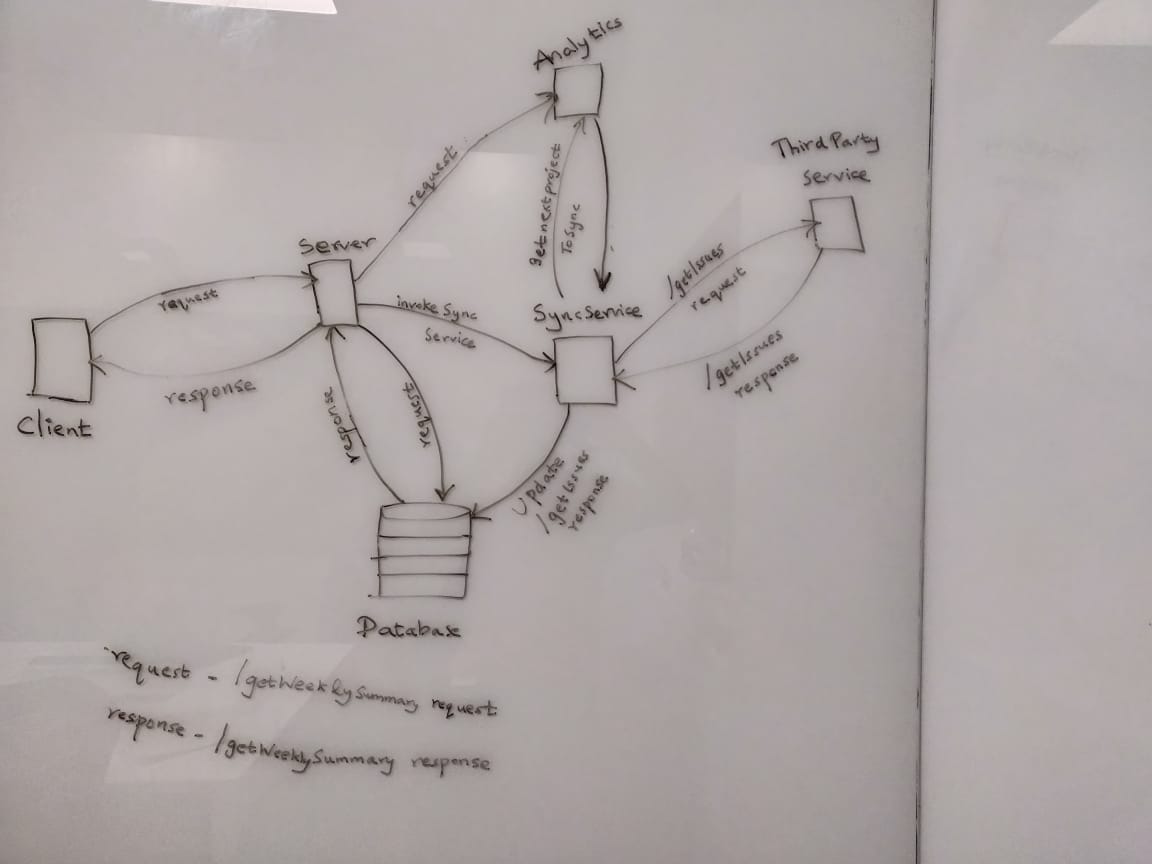 Analytics
Third Party
Service
request
getnextproject
To Sync
Server
/getIssues
request
request
invoke Sync
Service
SyncService
/getIssues
response
response
Client
response
request
Update
/getIssues
response
Database
request - /getWeeklySummary request
response - /getWeeklySummary response